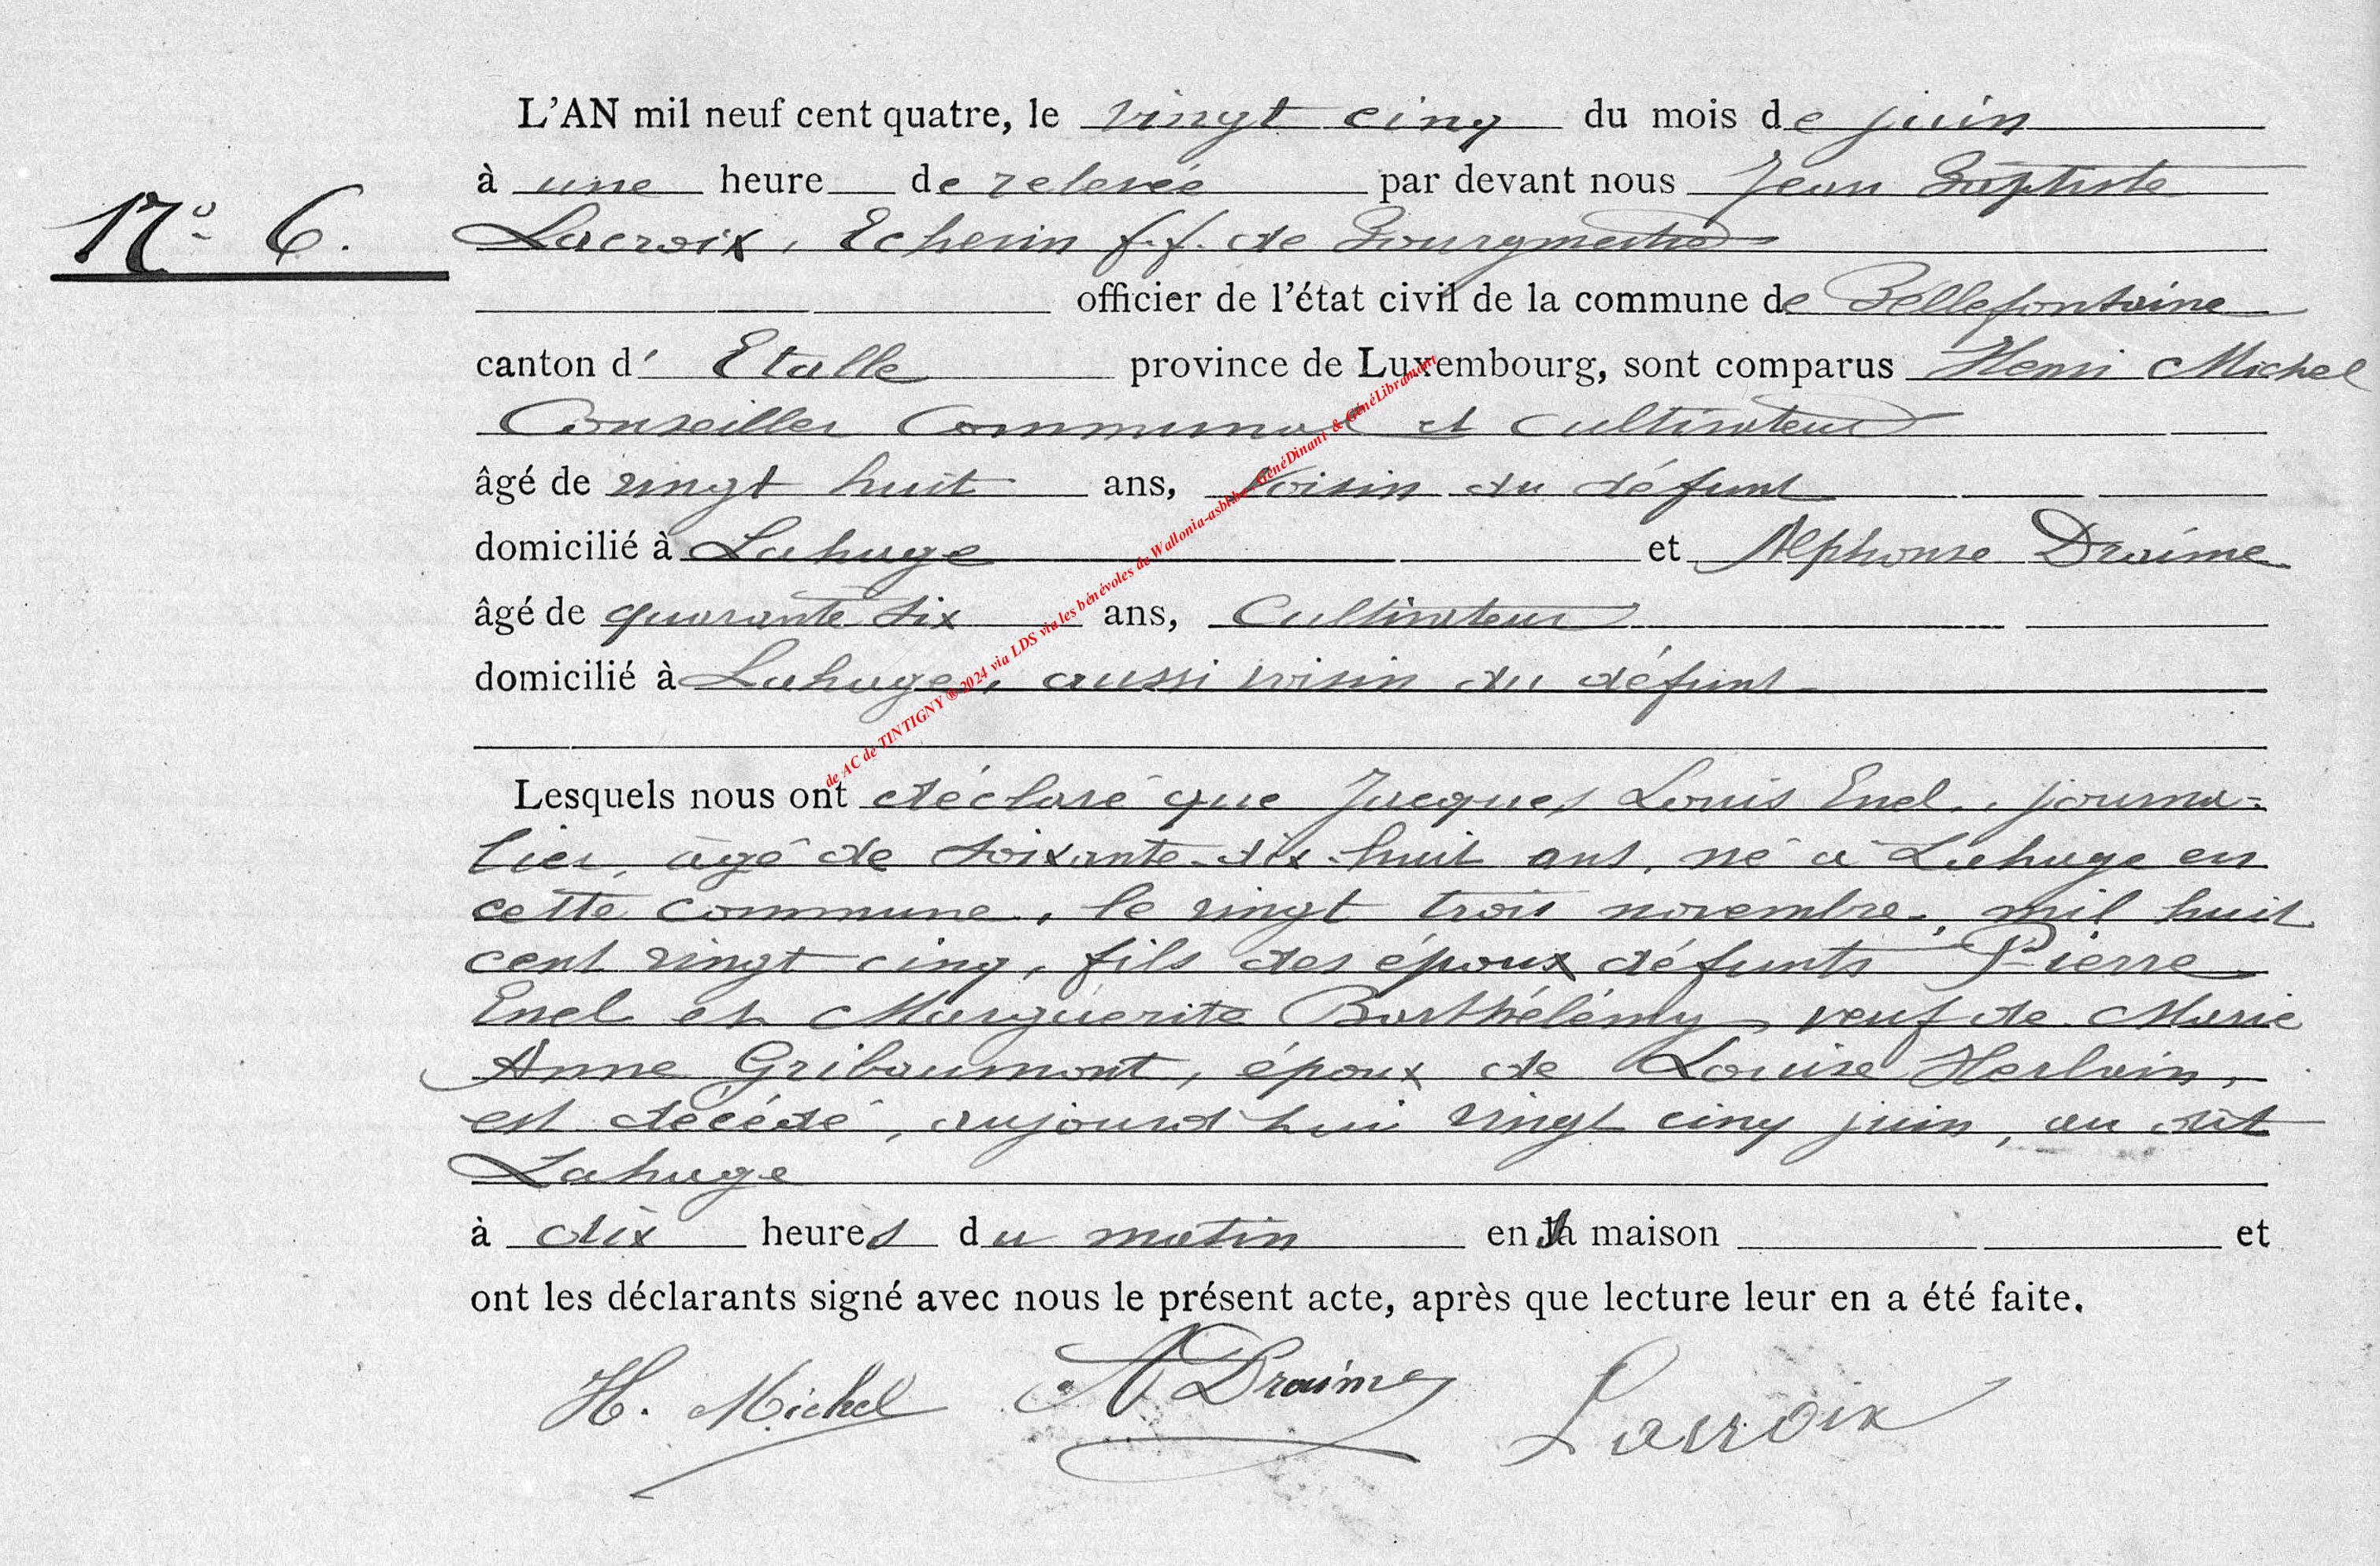 L'AN mil neuf cent quatre, le vingt cinq du mois de juin
à une heure de relevée par devant nous Jean Baptiste
N° 6.
Lacroix, Echevin f.f. de Bourgmestre
officier de l'état civil de la commune de Bellefontaine
canton d' Etalle province de Luxembourg, sont comparus Henri Michel
Conseiller Communal et cultivateur
âgé de vingt huit ans, voisin du défunt
domicilié à Lahage et Alphonse Draime
âgé de quarante six ans, Cultivateur
domicilié à Lahage, aussi voisin du défunt
de AC de TINTIGNY ® 2024 via LDS via les bénévoles de Wallonia-asbl.be, GénéDinant & GénéLibramont
Lesquels nous ont déclaré que Jacques Louis Enel, journa-
lier, âgé de soixante-dix-huit ans, né à Lahage en
cette commune, le vingt trois novembre, mil huit
cent vingt cinq, fils des époux défunts Pierre
Enel et Marguerite Barthélémy, veuf de Marie
Anne Gribaumont, époux de Louise Herbain,
est décédé, aujourd'hui vingt cinq juin, au dit
Lahage
à dix heures du matin en sa maison et
ont les déclarants signé avec nous le présent acte, après que lecture leur en a été faite.
H. Michel A Draime Lacroix